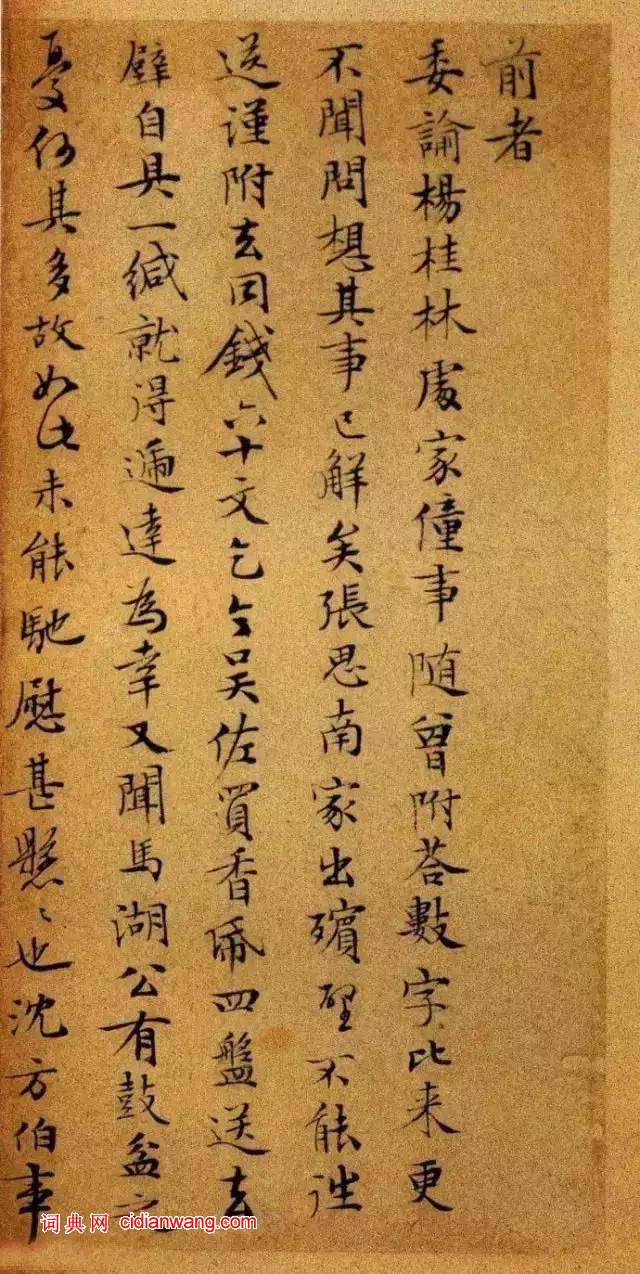 前者
委論楊桂林處家僮事随曾附荅數字比来更
不聞問想其事已解矣張思南家出殯瑆不能往
送谨附去同錢六十文乞令吴佐買香帋四盤送去
辟自具一緘就得遞達為幸又聞馬湖公有鼓盆之
憂何其多故如此未能馳慰甚懸〻也沈方伯事
词典网 cidianwang.com